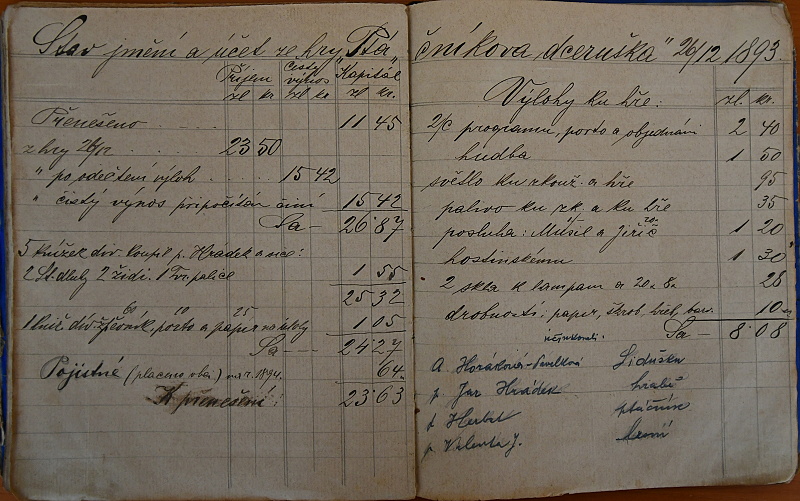 Stav jmění a účet ze hry „Ptáčníkova dceruška" 26/12 1893.
Příjem čistý výnos Kapitál
zl kr zl kr zl kr.
Přenešeno 11 45
z hry 26/12 23 50
" po odečtení výloh 15 42
" čistý výnos připočítán činí 15 42
Sa 26 87
5 knížek div. koupil p. Hrádek a sice:
2 St. dluhy 2 židi. 1 Tvr. palice 1 55
25 32
60 10 25
1 kníž. div. zpěvník, porto a papír na 1 05
Sa 24 27
Pojistné (placeno ob.) na r. 1894. 64
K přenešení: 23 63
Výlohy ku hře: zl. kr.
2/c programu, porto a objednání 2 40
hudba 1 50
světlo ku zkouš. a hře 95
palivo ku zk. a ku hře 35
posluha: Musil a Jeřič 1 20
hostinskému 1 30
2 skla k lampam a 20 a 8 28
drobnosti: papír, škrob, 10
Sa 8 08
účinkovali:
A. Horáková-Pavelková Liduška
p Jar Hrádek hrabě
p Herbst ptáčník
p Valenta J.